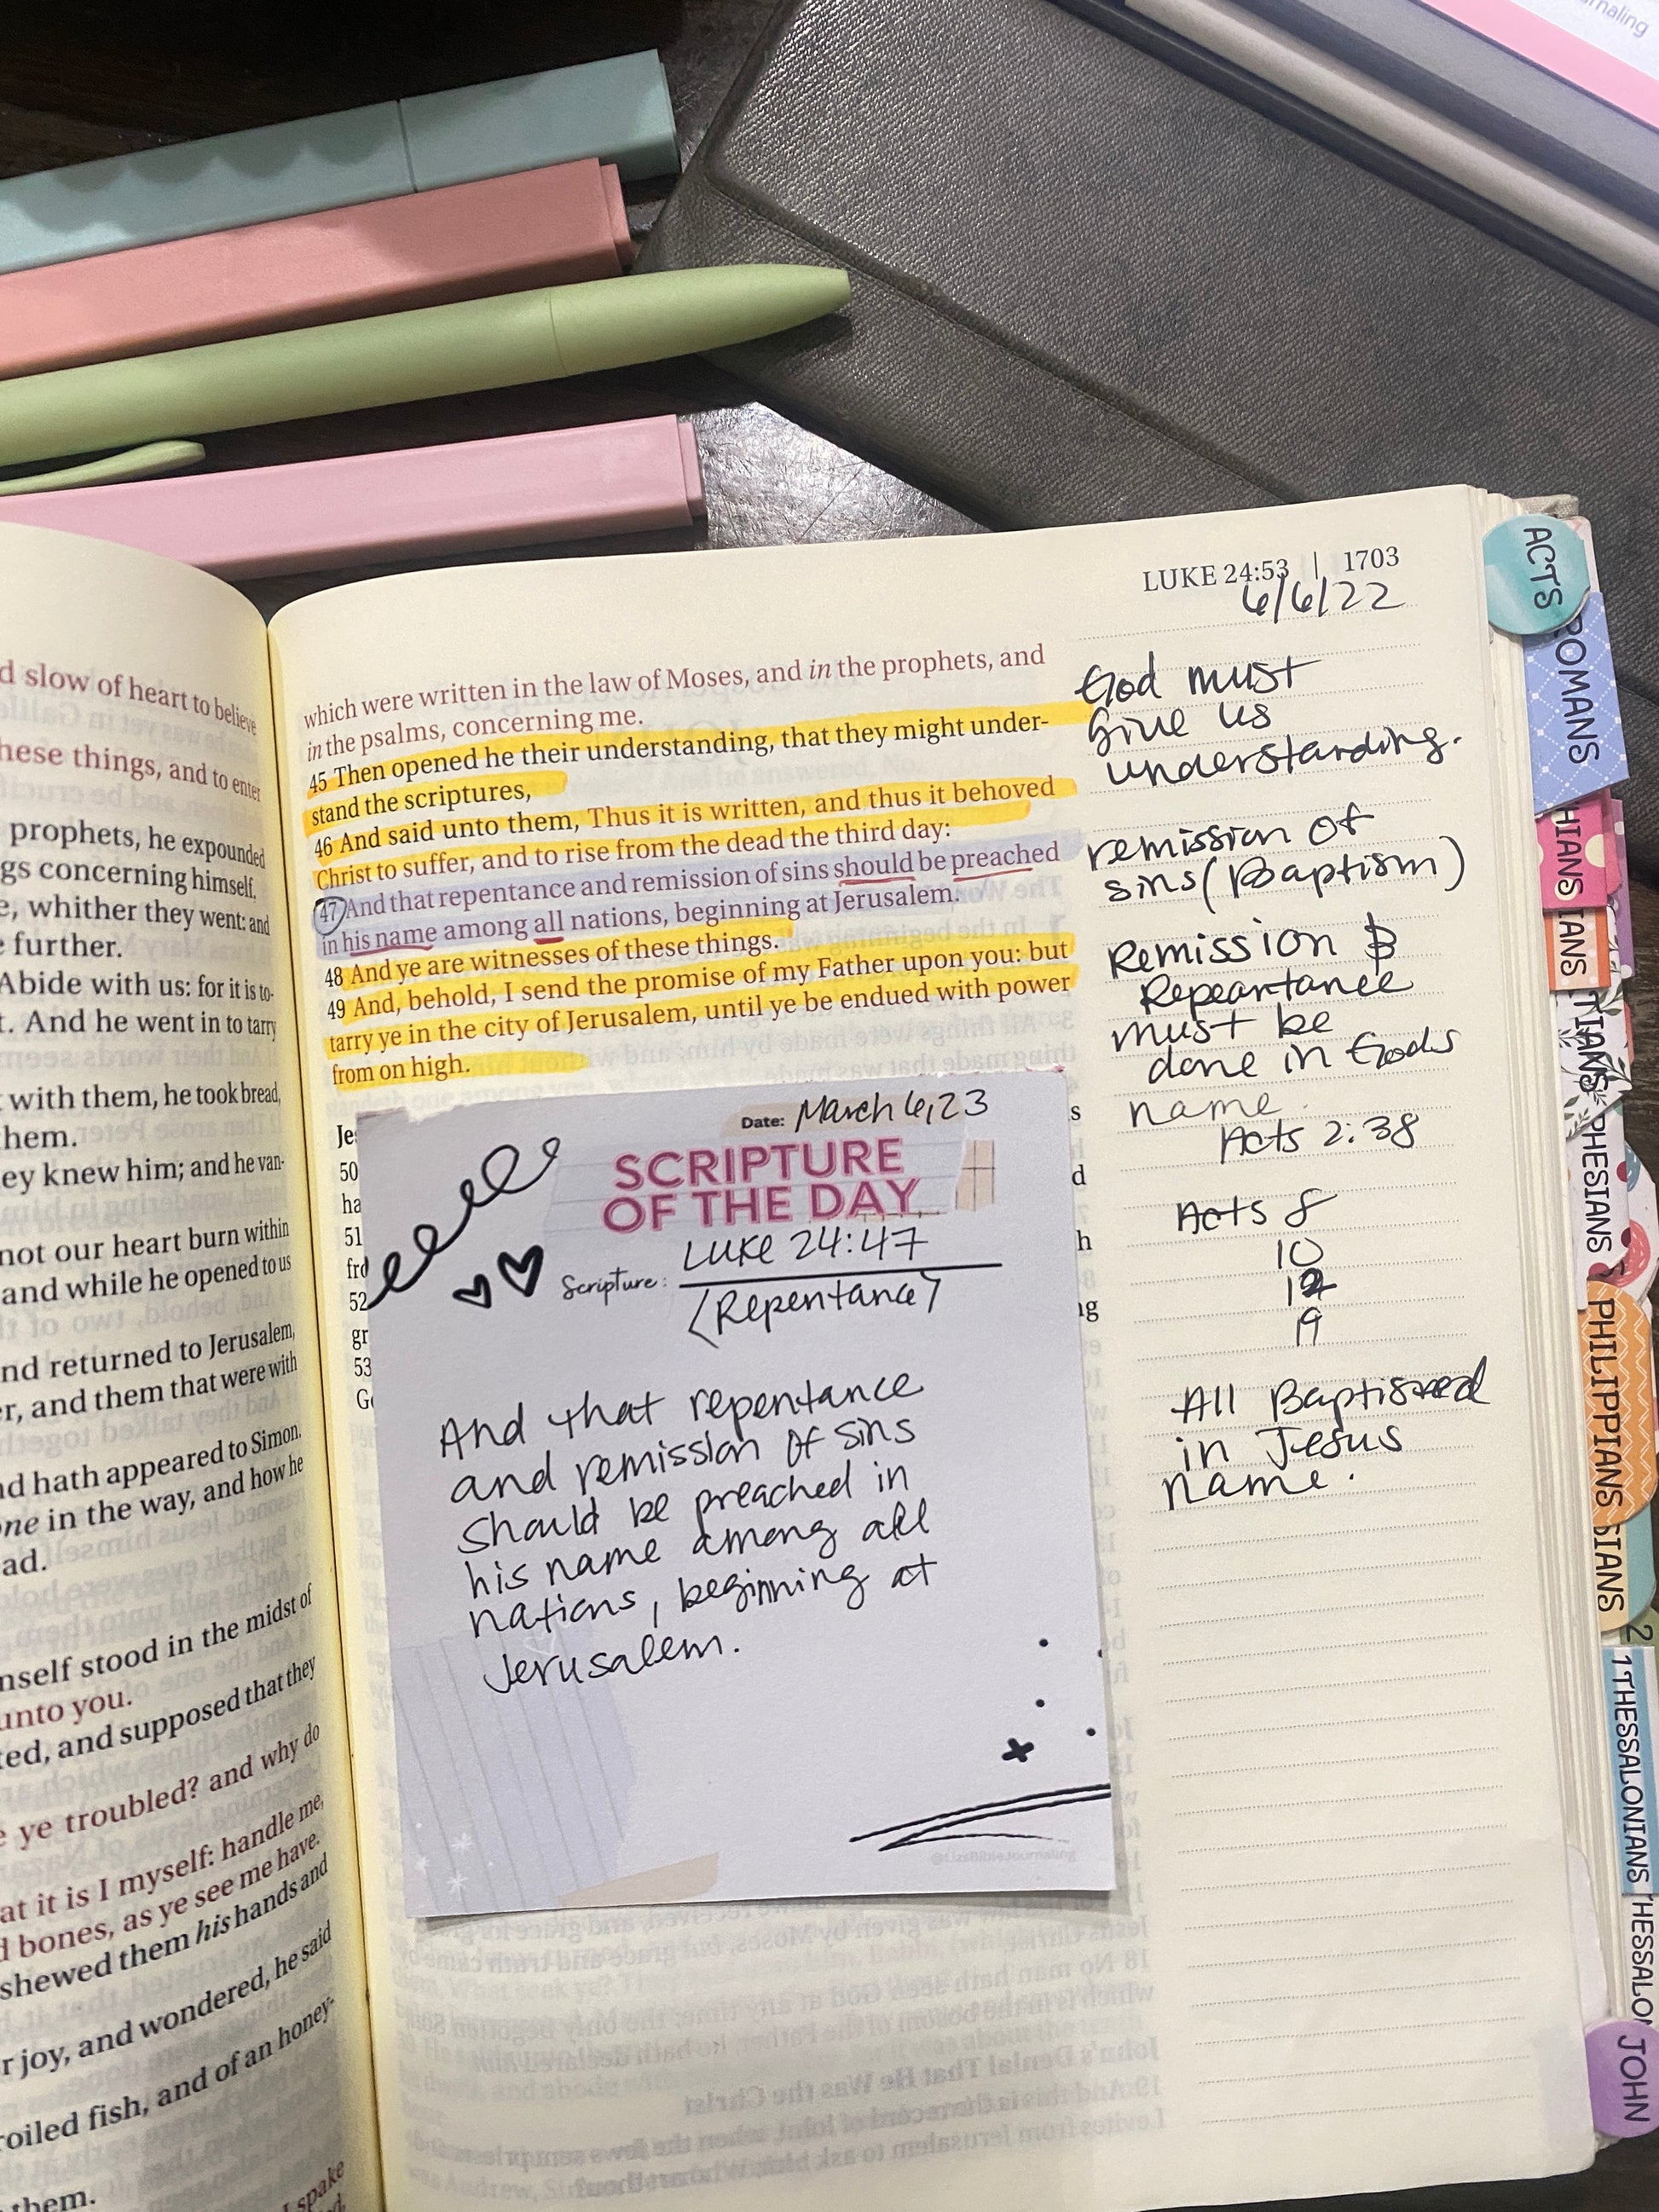 rnaling
d slow of heart to believe
hese things, and to enter
prophets, he expounded
gs concerning himself.
e, whither they went: and
e further.
Abide with us: for it is to-
t. And he went in to tarry
with them, he took bread,
hem.
ey knew him; and he van-
not our heart burn within
and while he opened to us
nd returned to Jerusalem,
er, and them that were with
nd hath appeared to Simon.
one in the way, and how he
ad.
mself stood in the midst of
unto you.
ted, and supposed that they
e ye troubled? and why do
at it is I myself: handle me,
d bones, as ye see me have.
shewed them his hands and
r joy, and wondered, he said
roiled fish, and of an honey-
them.
spake
LUKE 24:53 | 1703
which were written in the law of Moses, and in the prophets, and
in the psalms, concerning me.
45 Then opened he their understanding, that they might under-
stand the scriptures,
46 And said unto them, Thus it is written, and thus it behoved
Christ to suffer, and to rise from the dead the third day:
47 And that repentance and remission of sins should be preached
in his name among all nations, beginning at Jerusalem.
48 And ye are witnesses of these things.
49 And, behold, I send the promise of my Father upon you: but
tarry ye in the city of Jerusalem, until ye be endued with power
from on high.
Je
s
50
ha
d
51
fro
h
52
gr
ng
53
Go
Date: March 6, 23
SCRIPTURE
OF THE DAY
Scripture: Luke 24:47
(Repentance)
And that repentance
and remission of sins
should be preached in
his name among all
nations, beginning at
Jerusalem.
@LizsBibleJournaling
6/6/22
God must
give us
understanding.
remission of
sins (Baptism)
Remission &
Repeartance
must be
done in Gods
name.
Acts 2:38
Acts 8
10
19
All Baptised
in Jesus
name.
ACTS
ROMANS
HIANS
IANS
TIANS
PHESIANS
PHILIPPIANS
SIANS
2
1 THESSALONIANS
THESSALO
JOHN